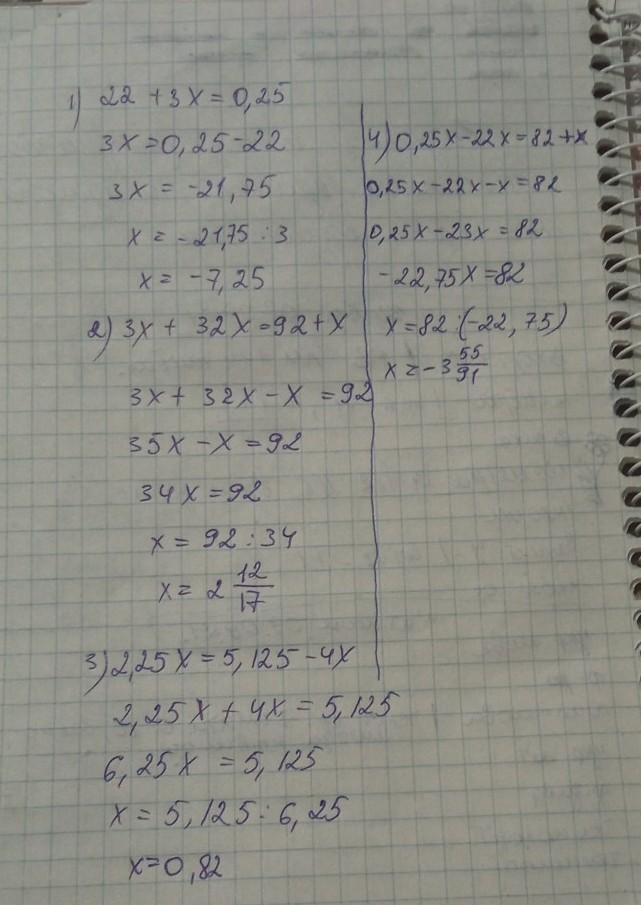 1) 22 + 3x = 0,25
3x = 0,25 - 22
3x = -21,75
x = -21,75 : 3
x = -7,25
2) 3x + 32x = 92 + x
3x + 32x - x = 92
35x - x = 92
34x = 92
x = 92 : 34
x = 2 12/17
3) 2,25x = 5,125 - 4x
2,25x + 4x = 5,125
6,25x = 5,125
x = 5,125 : 6,25
x = 0,82
4) 0,25x - 22x = 82 + x
0,25x - 22x - x = 82
0,25x - 23x = 82
-22,75x = 82
x = 82 : (-22,75)
x = -3 55/91